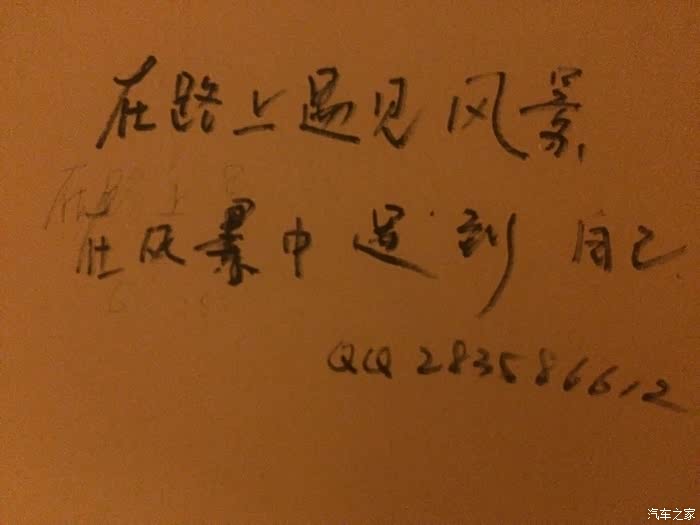 在路上遇见风景
在路上
在风景中遇到自己
QQ 283586612
汽车之家